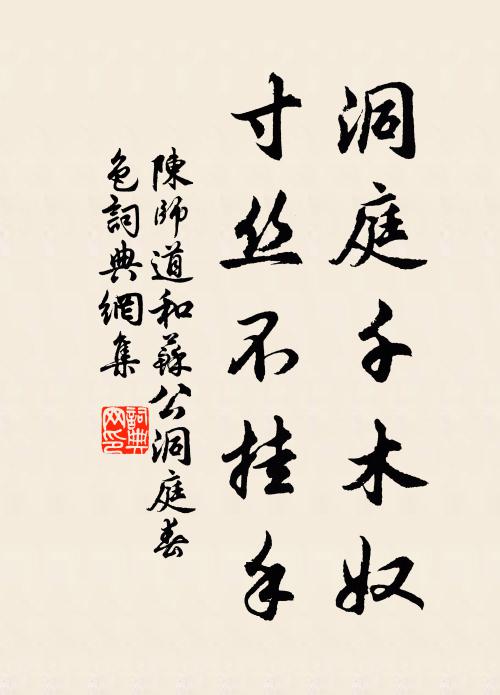 洞庭千木奴
寸丝不挂手
陳師道和蘇公洞庭春
色詞典網集
詞典
网印